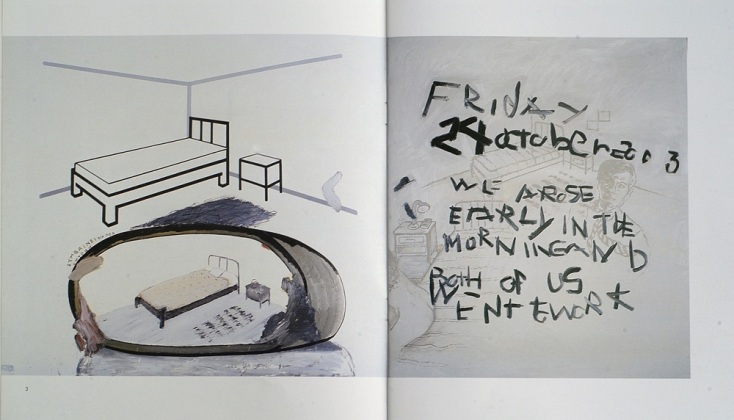 FRIDAY
24 october 2013
WE AROSE
EARLY IN THE
MORNING AND
BOTH OF US
WENT EWORK